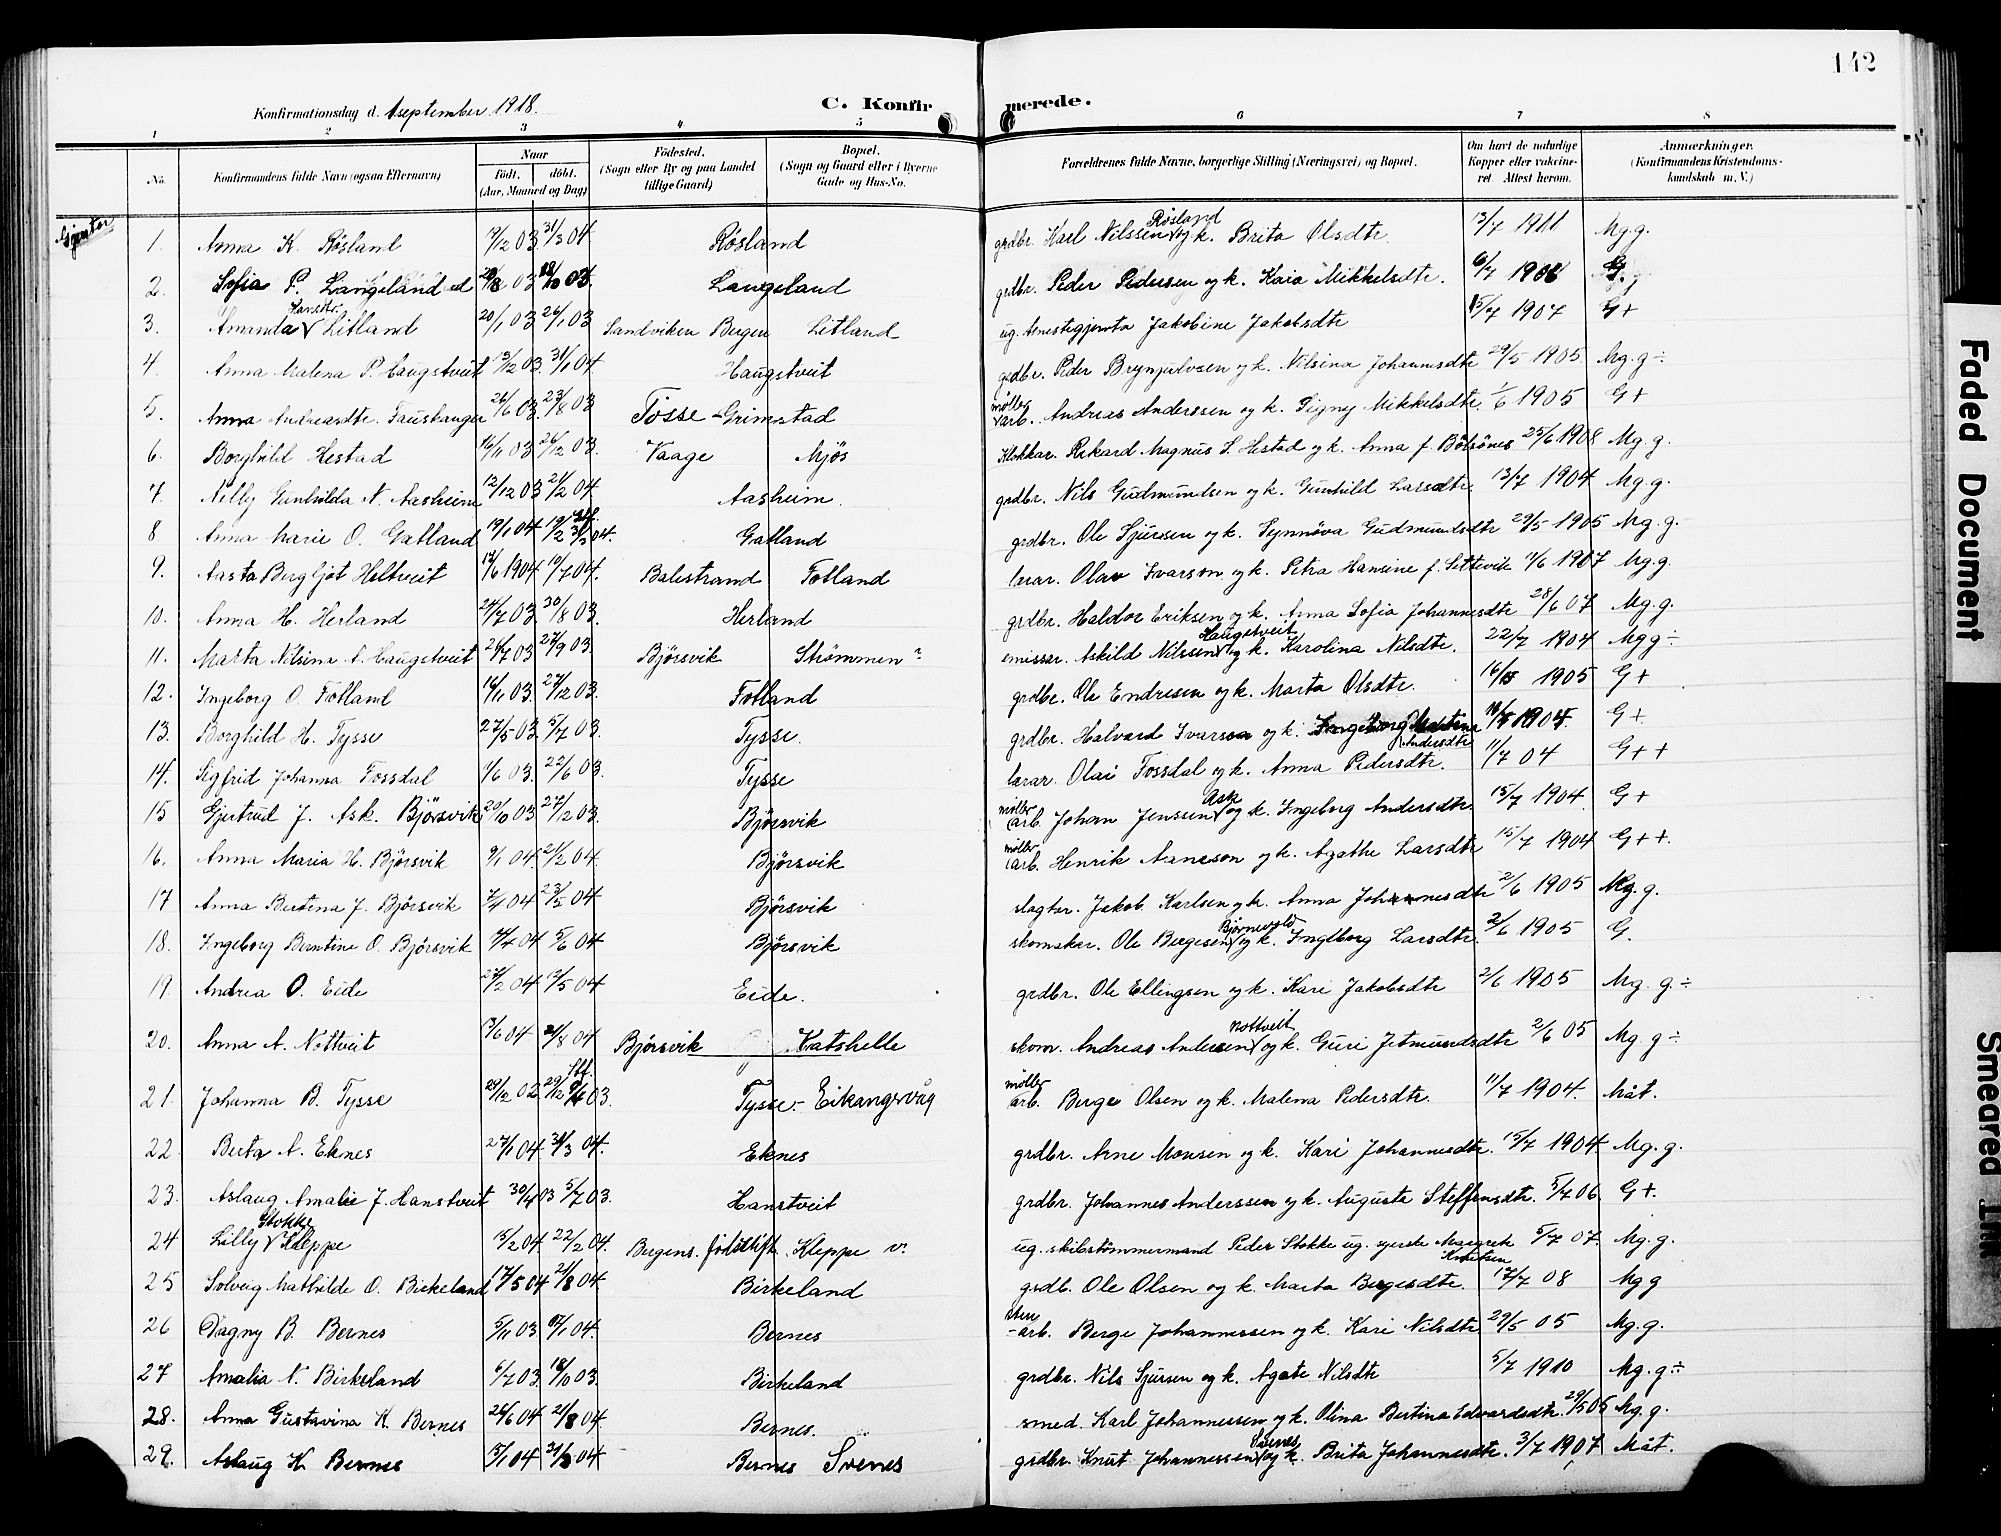 142
Konfirmationsdag d. 1 september 1918.
C. Konfirmerede.
1 2 3 4 5 6 7 8
No. Konfirmandens fulde Navn (ogsaa Efternavn) Naar født. døbt. (Aar, Maaned og Dag) Fødested. (Sogn eller By og paa Landet tillige Gaard) Bopæl. (Sogn og Gaard eller i Byerne Gade og Hus-No. Forældrenes fulde Navne, borgerlige Stilling (Næringsvei) og Bopæl. Om havt de naturlige Kopper eller vakcineret. Attest herom. Anmærkninger. (Konfirmandens Kristendomskundskab m. V.)
Gjenter
1. Anna K. Røsland 19/12 03 31/3 04 Røsland grdbr. Karl Nilssen Røsland og k. Brita Olsdtr. 13/7 1911 Mg.g.
2. Sofia P. Langeland 03 03. Langeland grdbr. Peder Pedersen og k. Kaia Mikkelsdtr. 6/7 1908 G.
3. Amanda Hansdtr. Litland 20/1 03 26/1 03 Sandviken Bergen Litland ug. tenestegjenta Jakobine Jakobsdtr 15/7 1907 G+
4. Anna Malena P. Haugstveit 13/12 03. 31/1 04 Haugstveit grdbr. Peder Brynjulvsen og k. Nilsina Johannesdtr 29/5 1905. Mg.g÷
5. Anna Andreasdtr. Fauskanger 26/6 03. 23/8 03 Tosse - Grimstad møller arb. Andreas Anderssen og k. Signy Mikkelsdtr. 1/6 1905 G+
6. Borghild Hestad 16/11 03. 26/12 03. Vaage Mjøs Klokkar. Rikard Magnus S. Hestad og k. Anna f. Bölsönes 25/6 1908 Mg.g.
7. Nelly Gunhilda N. Aasheim 12/12 03 21/2 04 Aasheim. grdbr. Nils Gudmundsen og k. Gunhild Larsdtr. 13/7 1904 Mg.g.
8 Anna Marie O. Gatland 19/1 04 19/2 31/3 04. Gatland grdbr. Ole Sjurssen og k. Synnöva Gudmundsdtr 29/5 1905 Mg.g.
9. Aasta Bergljot Holtveit 17/6 1904 10/7 04. Balestrand Fotland lærar. Olav Ivarson og k. Petra Hansine f. Slettevik 11/6 1907 Mg.g.
10. Anna H. Herland 24/7 03. 30/8 03. Herland grdbr. Haldor Eriksen og k. Anna Sofia Johannesdtr 28/6 07 Mg.g.
11. Marta Nilsina A. Haugstveit 26/7 03 27/9 03. Bjørsvik Strømmen emissær. Askild Nilssen Haugstveit og k. Karolina Nilsdtr. 22/7 1904 Mg g÷
12. Ingeborg O. Fotland 14/11 03. 27/12 03. Fotland grdbr. Ole Endresen og k. Marta Olsdtr. 1905 G+
13. Borghild H. Tysse 27/5 03. 5/7 03. Tysse. grdbr. Halvard Ivarson og k. Ingeborg Martina Andersdtr 1904. G+
14. Sigfrid Johanna Fossdal 1/6 03. 22/6 03. Tysse lærar. Olai Fossdal og k. Anna Pedersdtr. 11/7 04 G++
15 Gjertrud J. Ask. Björsvik 20/10 03 27/12 03. Björsvik møller arb. Johan Jenssen Ask og k. Ingeborg Andersdtr. 15/7 1904. G+
16. Anna Maria H. Björsvik 9/1 04. 21/2 04. Björsvik møller arb. Henrik Arneson og k. Agathe Larsdtr 15/7 1904 G++.
17 Anna Bertina J. Björsvik 7/4 04 23/5 04 Björsvik slagtar. Jakob Karlsen og k. Anna Johannesdtr 2/6 1905 Mg.g.
18. Ingeborg Berntine O. Björsvik 04 5/6 04 Björsvik skomakar. Ole Bergesen Bjørnevold og k. Ingeborg Larsdtr. 2/6 1905 G.
19. Andrea O. Eide 27/2 04 12/5 04 Eide. grdbr. Ole Ellingsen og k. Kari Jakobsdtr 2/6 1905 Mg. g.÷
20. Anna A. Nottveit 13/6 04 21/8 04 Björsvik Katshelle skom. Andreas Andersen Nottveit og k. Guri Jetmundsdtr 2/6 05 Mg.g÷
21. Johanna B. Tysse 29/12 02. 29/12 Stf. 03. Tysse. - Eikangervåg møller arb. Berge Olsen og k. Malena Pedersdtr. 11/7 1904. Måt.
22 Berta A. Eknes 27/1 04. 31/3 04. Eknes grdbr. Arne Monsen og k. Kari Johannesdtr. 15/7 1904. Mg.g.
23. Aslaug Amalie J. Hanstveit 30/4 03 5/7 03. Hanstveit grdbr. Johannes Anderssen og k. Augusta Steffensdtr. 5/7 06. G+.
24 Lilly Stokke Kleppe 15/2 04. 22/2 04. Bergens. fødstift. Kleppe v. ug. skibstømmermand Peder Stokke ug. syerske Margrete Knutsen 5/7 07. Mg.g.
25 Solveig Mathilde O. Birkeland 17/5 04 21/8 04. Birkeland grdb. Ole Olsen og k. Marta Bergesdtr. 17/7 08 Mg g
26 Dagny B. Bernes 5/11 03. 1/1 04. Bernes sten-arb. Berge Johannessen og k. Kari Nilsdtr 29/5 05 Mg.g.
27 Amalia N. Birkeland 6/7 03. 18/10 03. Birkeland grdbr. Nils Sjursen og k. Agate Nilsdtr 5/7 1910 Mg.g÷
28. Anna Gustavina K. Bernes 26/6 04. 21/8 04 Bernes. smed. Karl Johannessen og k. Olina Bertina Edvardsdtr. 29/5 05 Mg.g.
29. Aslaug K. Bernes 15/1 04 04 Bernes Svenes grdbr. Knut Johannessen Svenes og k. Brita Johannesdtr. 3/7 1907 Måt.
Faded Document
Smeared Ink